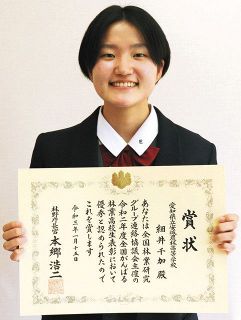 賞状
愛知県立安城農林高等学校
細井千加 殿
あなたは全国林業研究
グループ連絡協議会主催の
令和二年度全国がんばる
林業高校生表彰において
優秀と認められたので
これを賞します
令和三年一月十五日
林野庁長官 本郷浩二